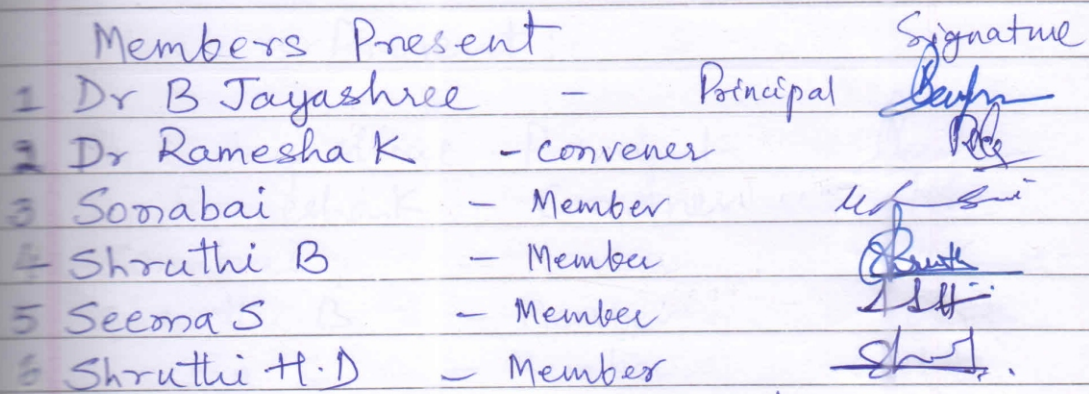 Members Present Signature
1 Dr B Jayashree - Principal
2 Dr Ramesha K - convener
3 Somabai - Member
4 Shruthi B - Member
5 Seema S - Member
6 Shruthi H.D - Member